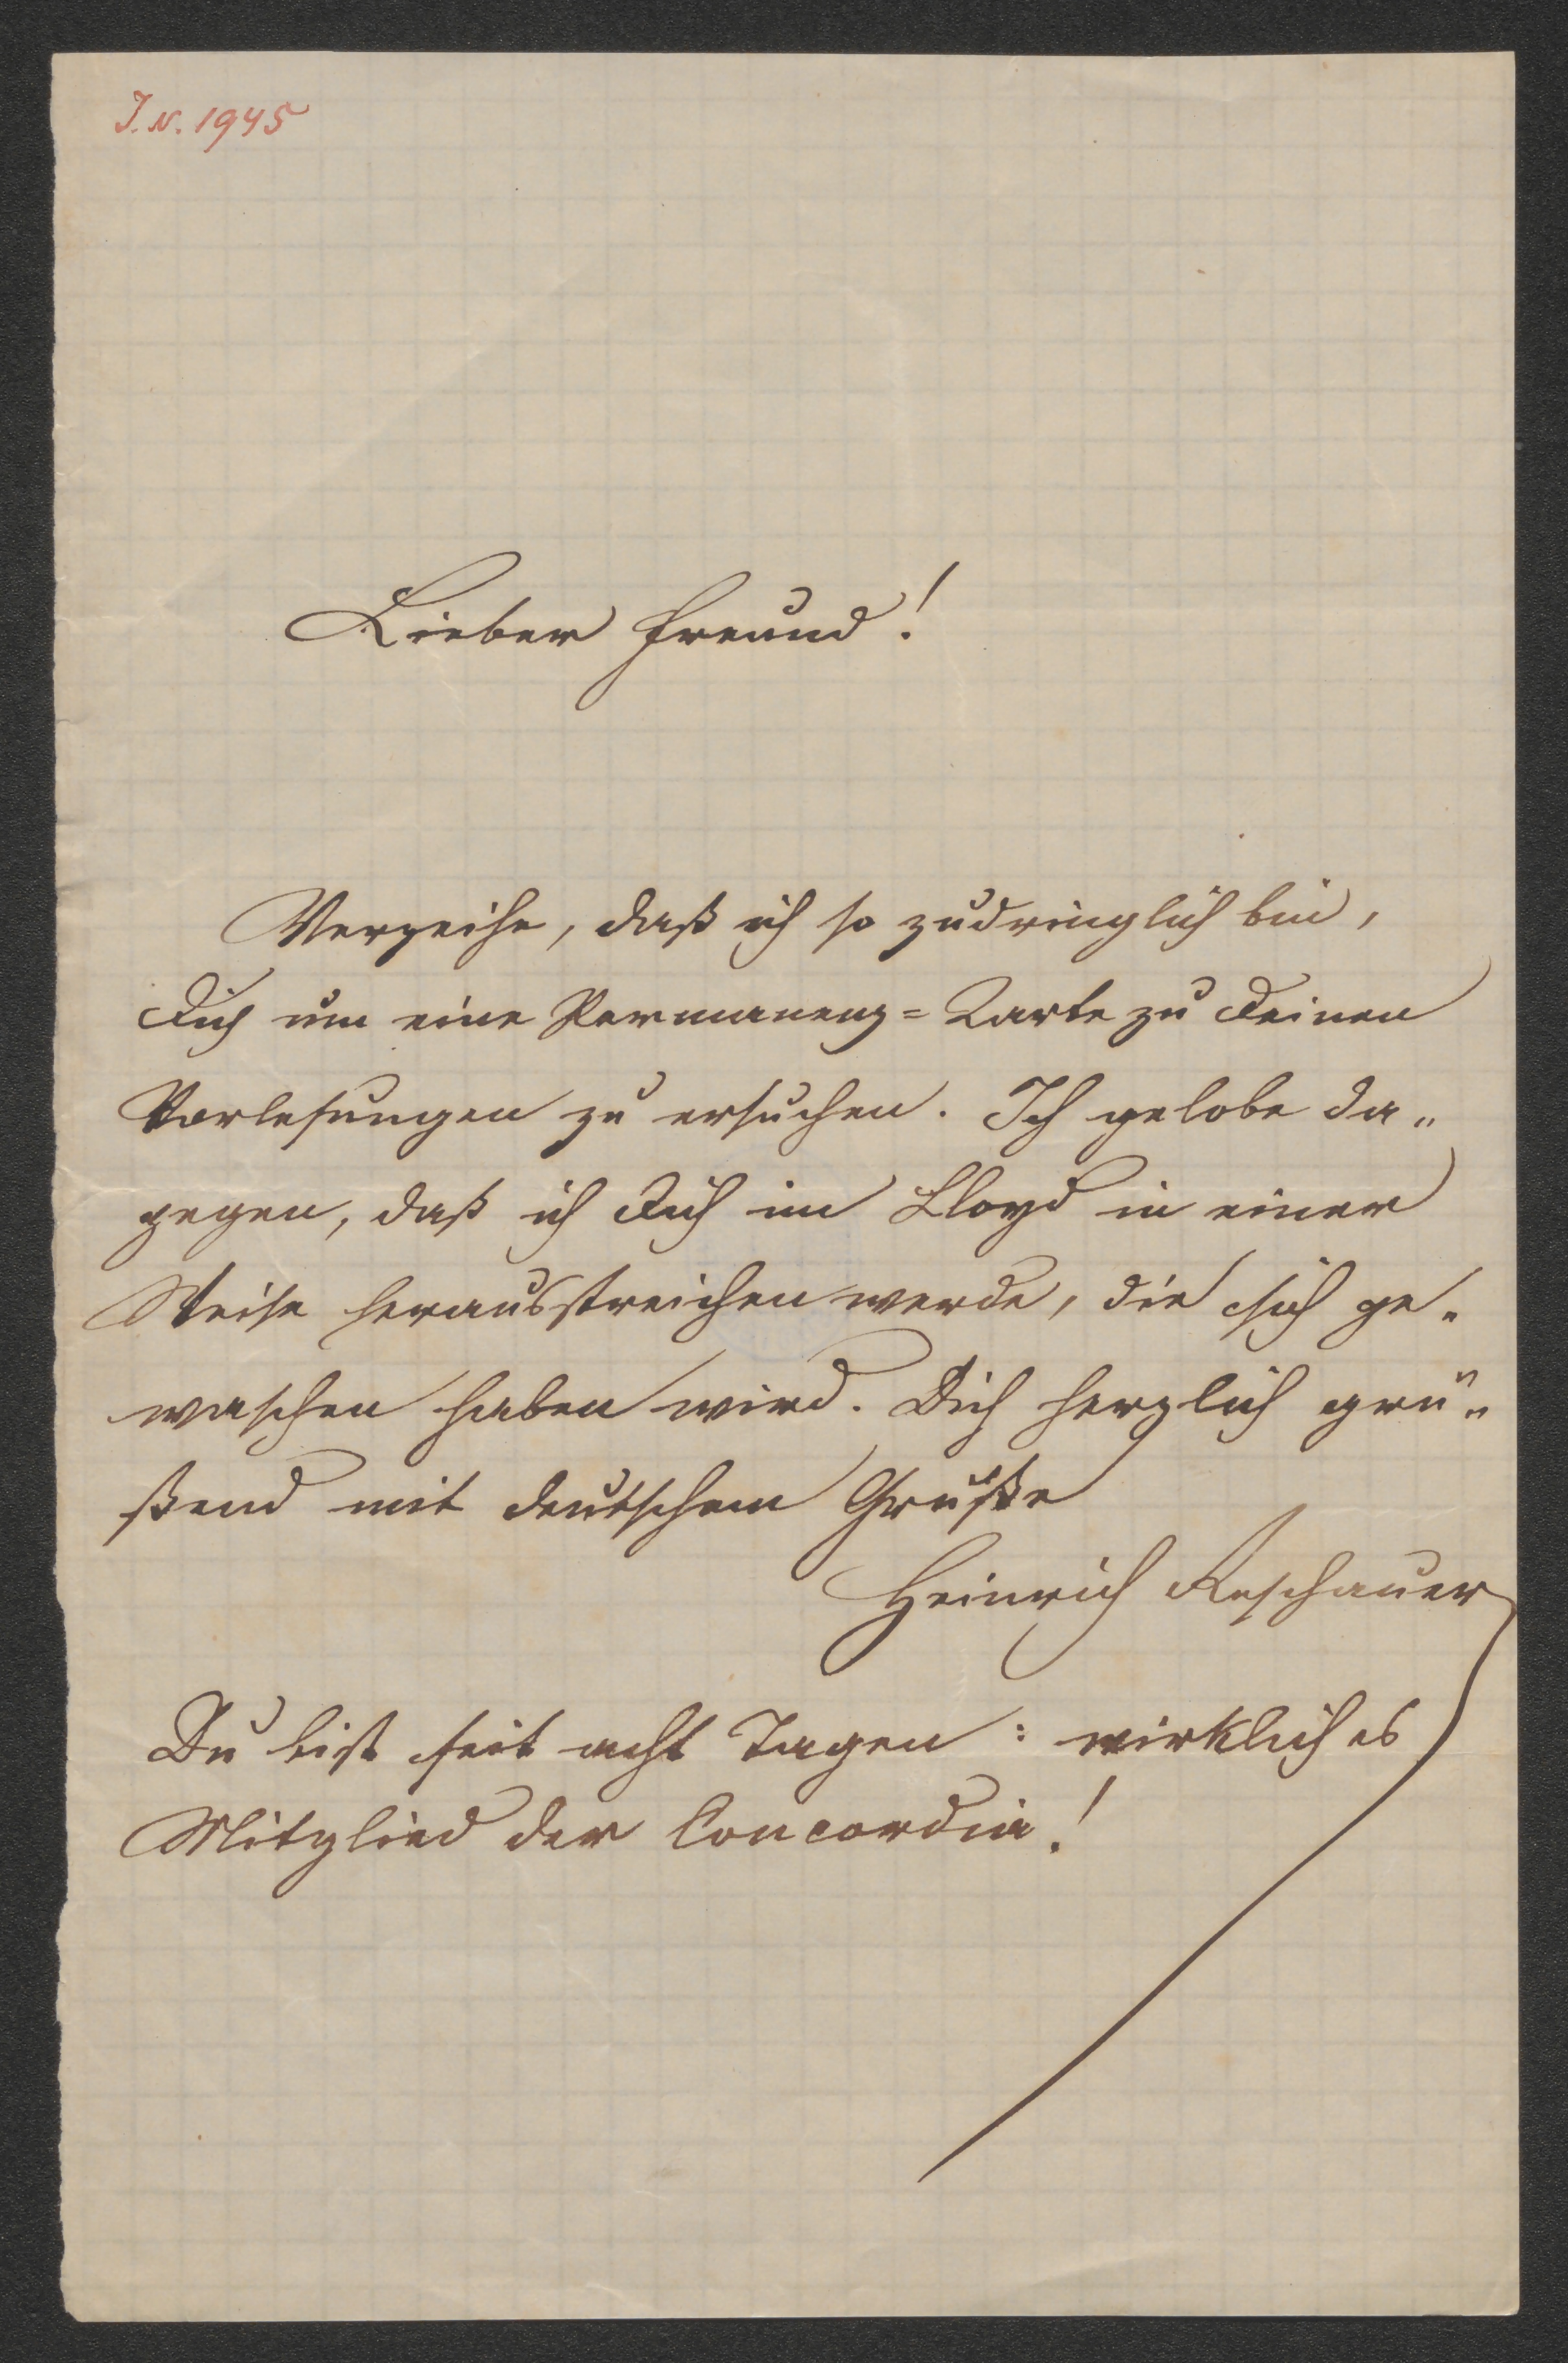 J.N. 1945
Lieber Freund!
Verzeihe, daß ich so zudringlich bin,
Dich um eine Permanenz=Karte zu Deinen
Vorlesungen zu ersuchen. Ich gelobe da„
gegen, daß ich Dich im Lloyd in einer
Weise herausstreichen werde, die sich ge„
waschen haben wird. Dich herzlich grü„
ßend mit deutschem Gruße
Heinrich Reschauer
Du bist seit acht Tagen: wirkliches
Mitglied der Concordia!